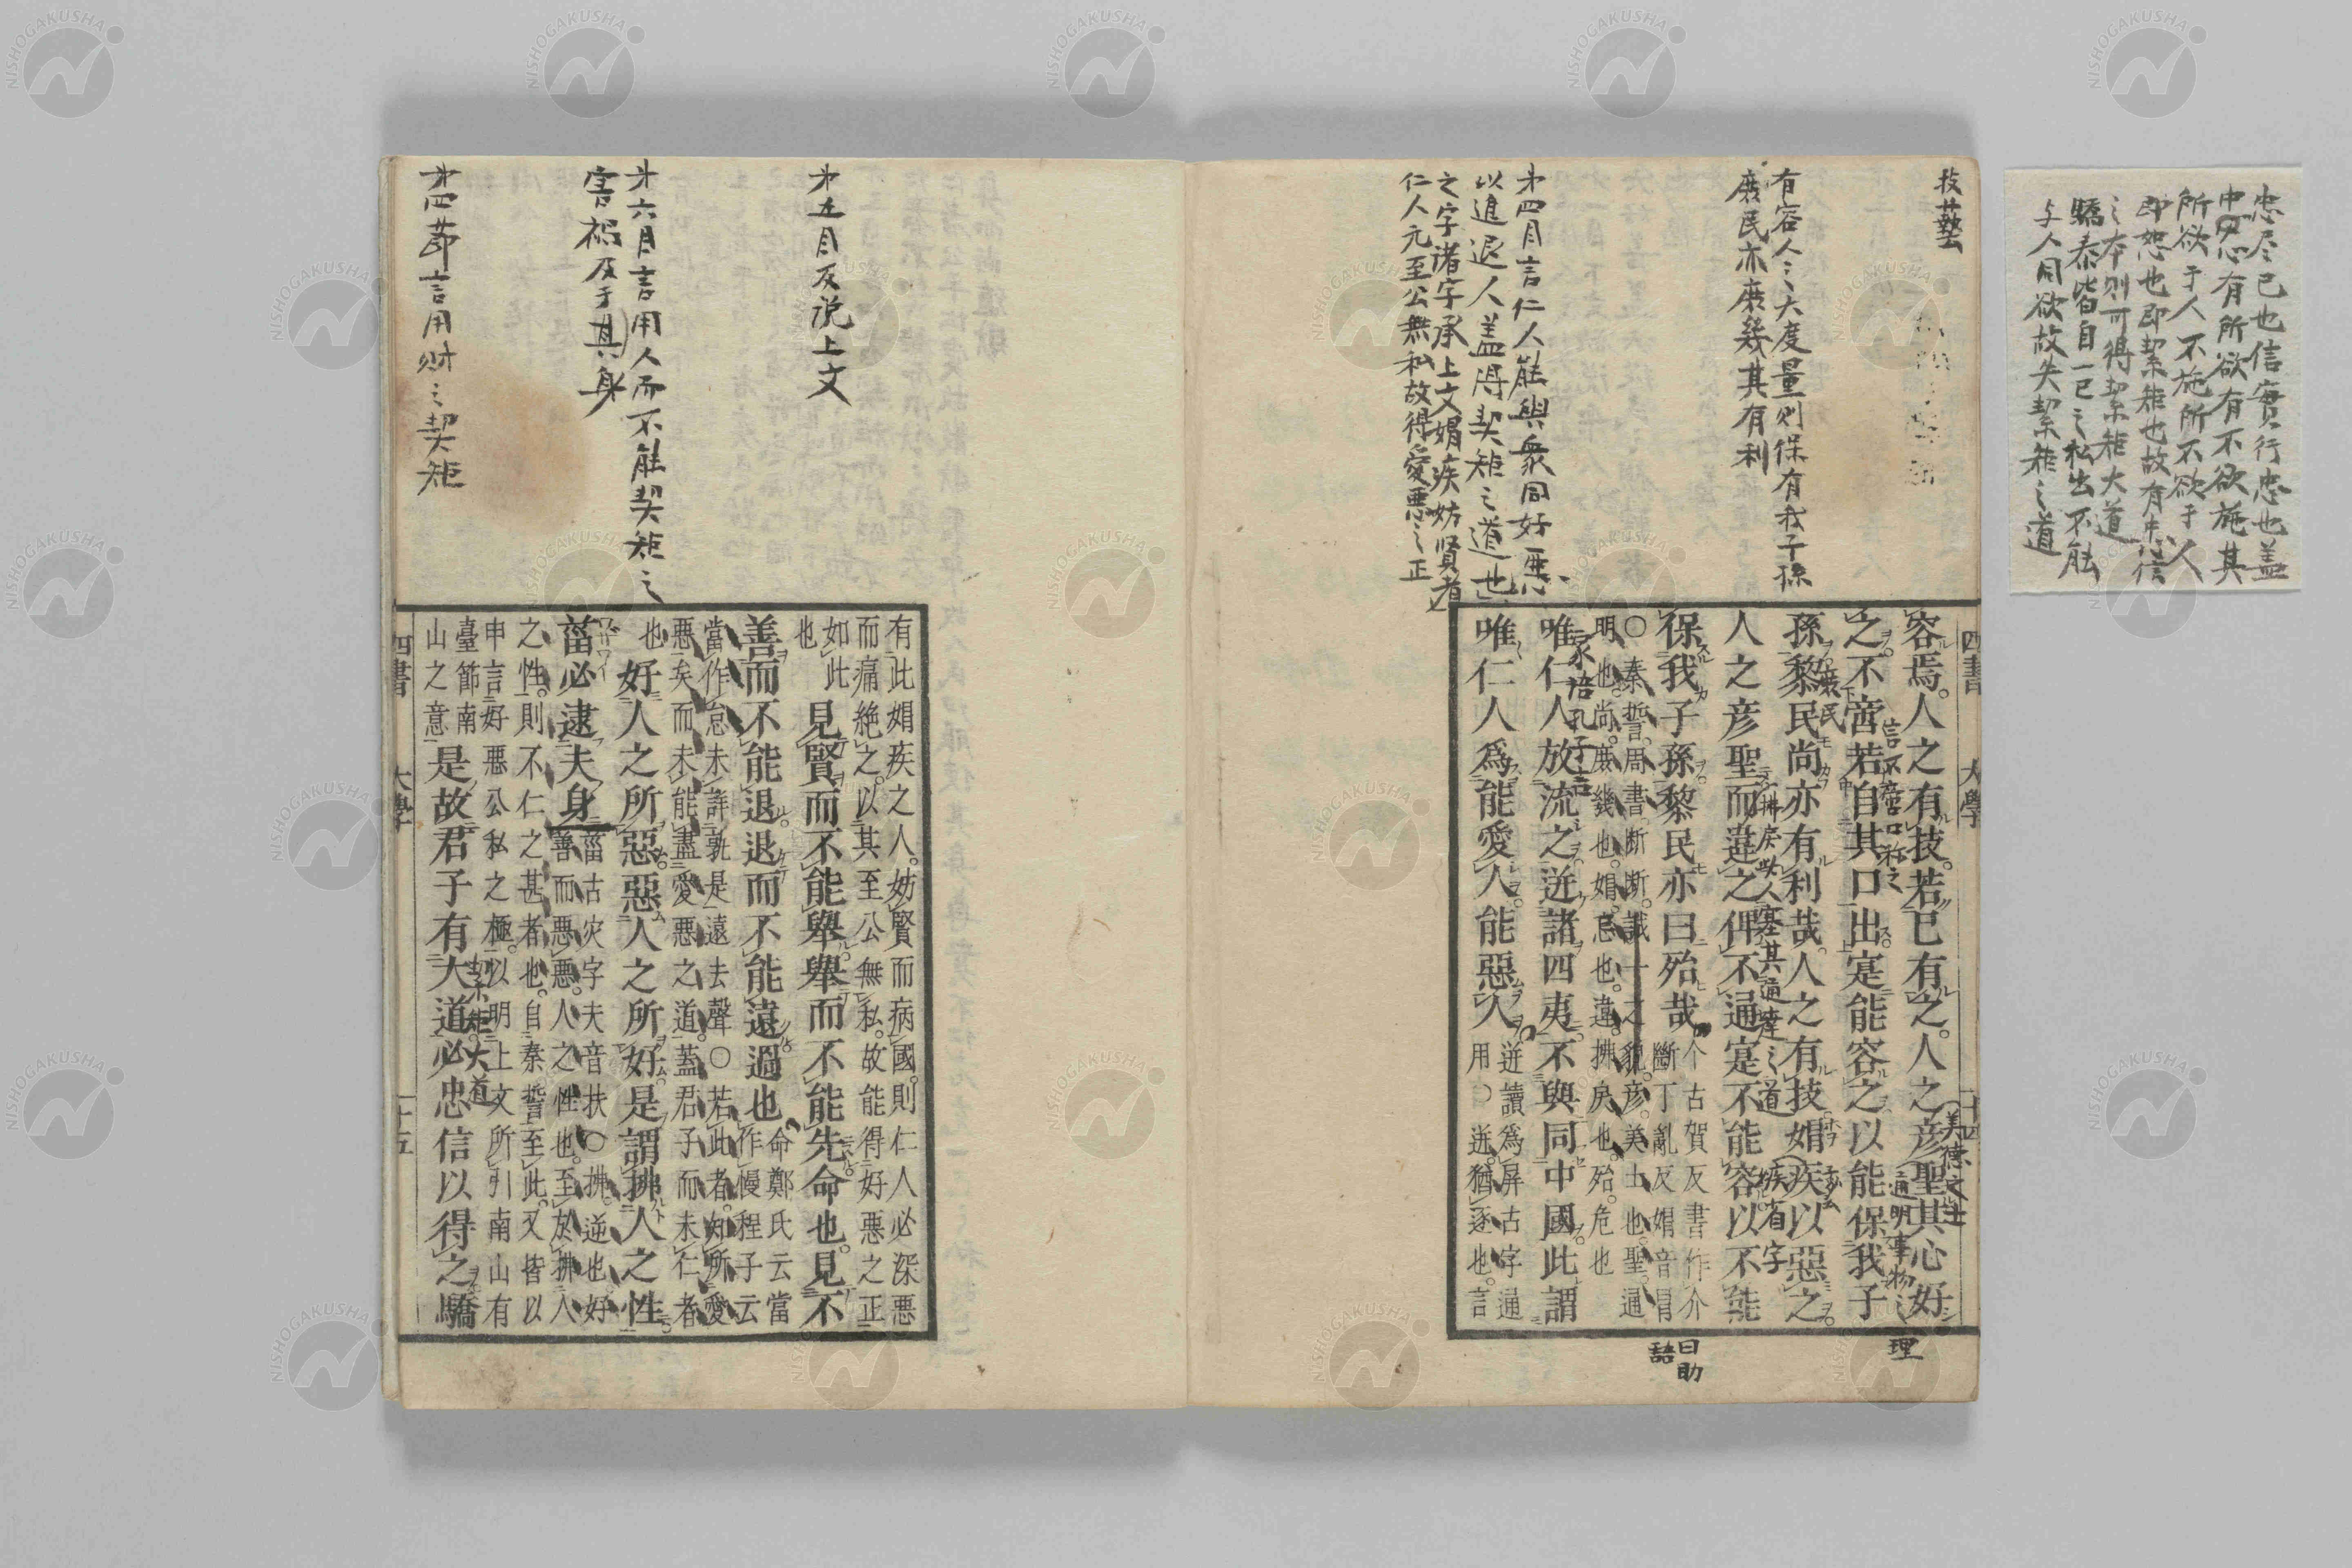 忠尽己也信實行忠也盖
中心有所欲有不欲施其
所欲于人不施所不欲于人
即恕也即絜矩也故有忠信
之本則可得絜矩大道
驕泰皆自一己之私出不能
与人同欲故失絜矩之道
技藝
有容人之大度量則保有我子孫
庶民亦庶幾其有利
才四月言仁人能與衆同好悪
以進退人盖得契矩之道也
之字诸字承上文媢疾妨贤者
仁人元至公無私故得愛悪之正
四書 大學 十四
容焉。人之有技。若己有之。人之彦聖其心好
美德文士
通明事物之理
之不啻若自其口出寔能容之以能保我子
信不啻口称之
孫黎民尚亦有利哉。人之有技媢疾以惡之
庶民
人之彦聖而違之俾不通寔不能容以不能
拂戻此人塞其通達之道
疾有字
保我子孫黎民亦曰殆哉
个古賀反書作介
斷丁亂反媢音冒
曰助
語
○秦誓。周書。断断。誠一之貌。彦。美士也。聖。通
明也。尚。庶幾也。媢。忌也。違。拂戻也。殆。危也
唯仁人放流之迸諸四夷不與同中國此謂
家语孔子言
唯仁人爲能愛人能惡人
迸讀爲屏古字通
用○迸。猶逐也。言
才五月反说上文
才六月言用人而不能契矩之
害禍及于其身
才四節言用财之契矩
有此媢疾之人。妨賢而病國。則仁人必深惡
而痛絶之。以其至公無私。故能得好惡之正
如此
也
見賢而不能舉舉而不能先命也。見不
善而不能退退而不能遠過也
命鄭氏云當
作慢程子云
當作怠未詳孰是遠去聲○若此者。知所愛
惡矣而未能盡愛惡之道。蓋君子而未仁者
也
好人之所惡惡人之所好是謂拂人之性
菑必逮夫身
菑古灾字夫音扶○拂。逆也。好
善而惡惡。人之性也。至於拂人
之性。則不仁之甚者也。自秦誓至此。又皆以
申言好惡公私之極。以明上文所引南山有
臺節南
山之意
是故君子有大道必忠信以得之驕
契矩大道
四書 大學 十五